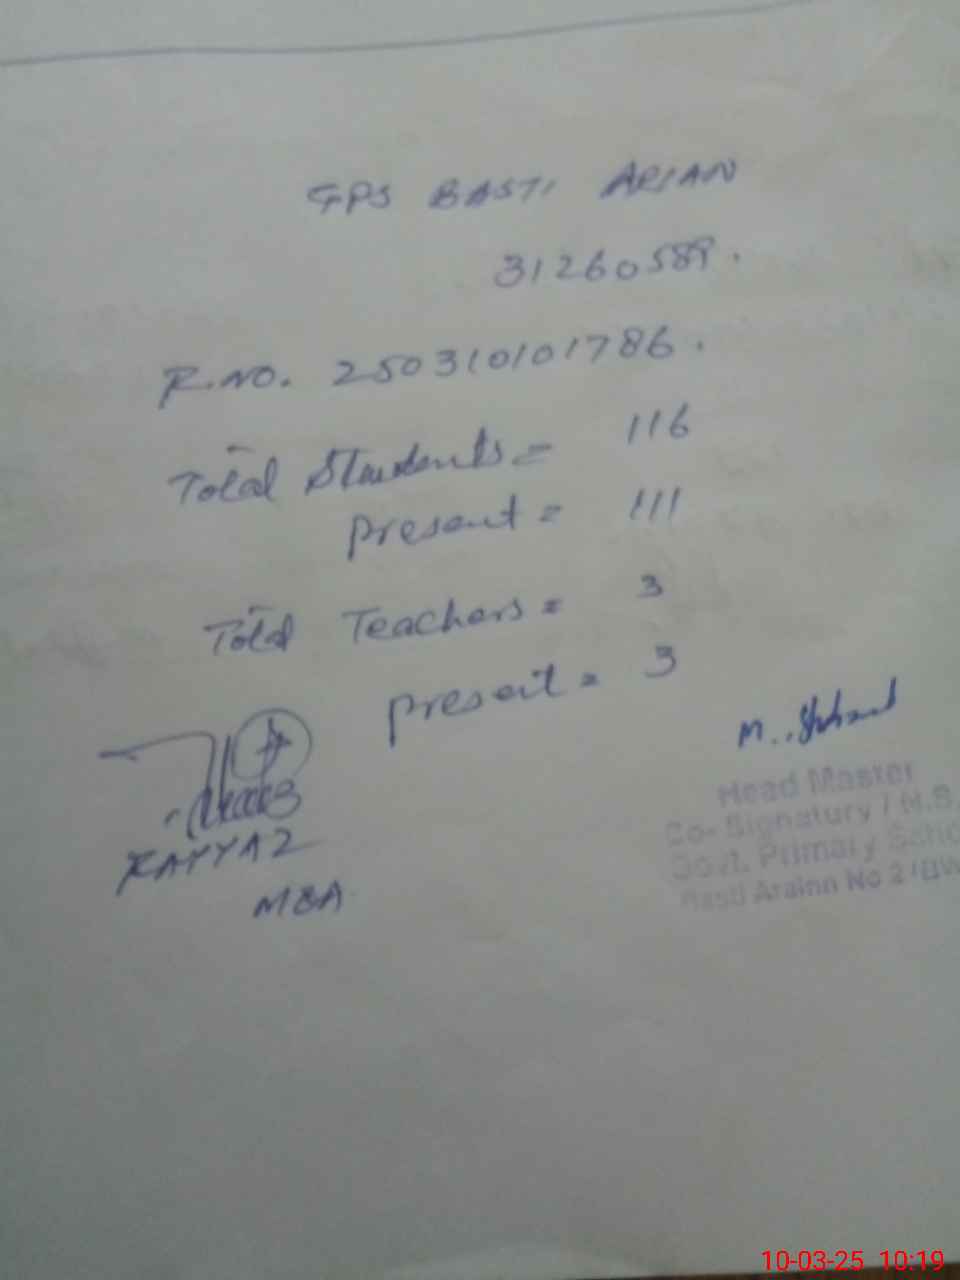 GPS BASTI ARIAN
31260589.
R.NO. 250310101786.
Total Students = 116
Present = 111
Total Teachers = 3
Present = 3
RAYYAZ
MEA
M.
Head Master
Co-Signatury / N.S
Govt. Primary Scho
Basti Arainn No 2
10-03-25 10:19